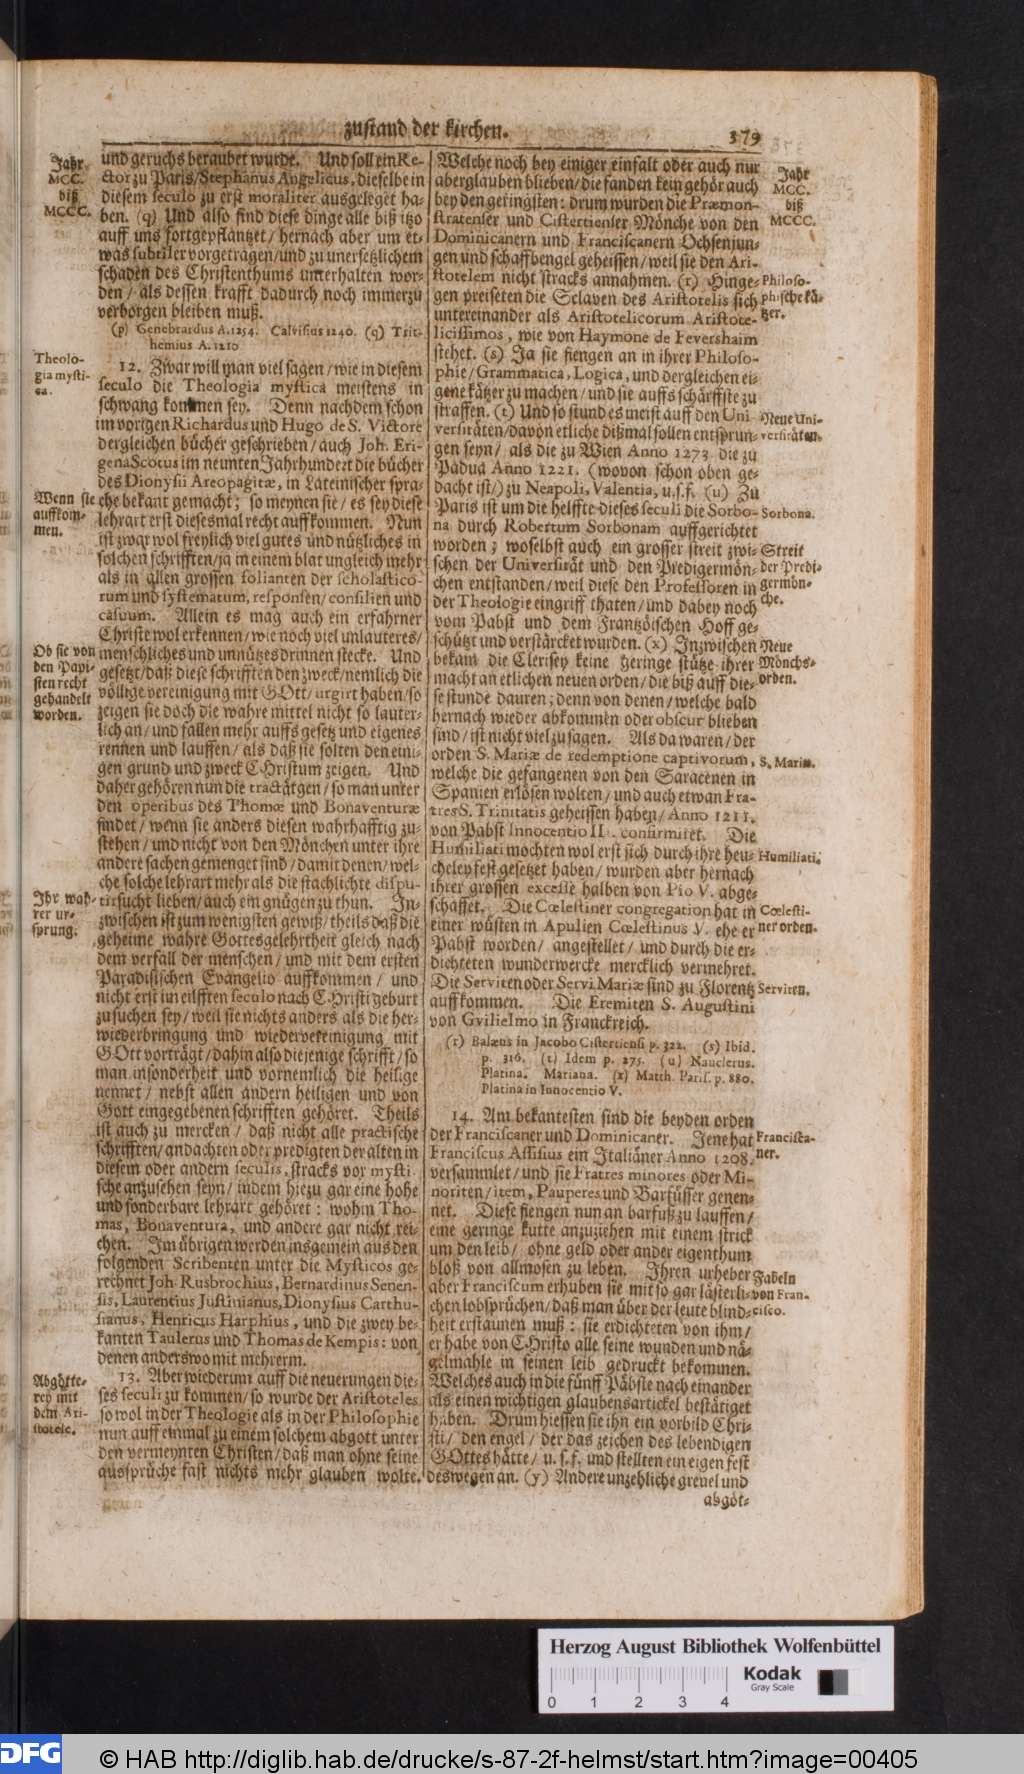 zustand der kirchen.
379
Jahr
MCC.
biß
MCCC.
und geruchs beraubet wurde. Und soll ein Re-
ctor zu Paris/ Stephanus Angelicus, dieselbe in
diesem seculo zu erst moraliter ausgeleget ha-
ben. (q) Und also sind diese dinge alle biß itzo
auff uns fortgepflantzet/ hernach aber um et-
was subtiler vorgetragen/ und zu unersetzlichem
schaden des Christenthums unterhalten wor-
den/ als dessen krafft dadurch noch immerzu
verborgen bleiben muß.
(p) Genebrardus A. 1254. Calvisius 1240. (q) Trit-
hemius A. 1210
Theolo-
gia mysti-
ca.
12. Zwar will man viel sagen/ wie in diesem
seculo die Theologia mystica meistens in
schwang kommen sey. Denn nachdem schon
im vorigen Richardus und Hugo de S. Victore
dergleichen bücher geschrieben/ auch Joh. Eri-
gena Scotus im neunten Jahrhundert die bücher
des Dionysii Areopagitæ, in Lateinischer spra-
Wenn sie
auffkom-
men.
che bekant gemacht; so meynen sie/ es sey diese
lehrart erst dieses mal recht auffkommen. Nun
ist zwar wol freylich viel gutes und nützliches in
solchen schrifften/ ja in einem blat ungleich mehr
als in allen grossen folianten der scholastico-
rum und systematum, responsen/ consilien und
casuum. Allein es mag auch ein erfahrner
Christe wol erkennen/ wie noch viel unlauteres/
Ob sie von
den Papi-
sten recht
gehandelt
worden.
menschliches und unnützes drinnen stecke. Und
gesetzt/ daß diese schrifften den zweck/ nemlich die
völlige vereinigung mit GOtt/ urgirt haben/ so
zeigen sie doch die wahre mittel nicht so lauter-
lich an/ und fallen mehr auffs gesetz und eigenes
rennen und lauffen/ als daß sie solten den eini-
gen grund und zweck Christum zeigen. Und
daher gehören nun die tractätgen/ so man unter
den operibus des Thomæ und Bonaventuræ
findet/ wenn sie anders diesen wahrhafftig zu-
stehen/ und nicht von den Mönchen unter ihre
andere sachen gemenget sind/ damit denen/ wel-
che solche lehrart mehr als die stachlichte dispu-
Ihr wah-
rer ur-
sprung.
tirsucht lieben/ auch ein gnügen zu thun. In-
zwischen ist zum wenigsten gewiß/ theils daß die
geheime wahre Gottesgelehrtheit gleich nach
dem verfall der menschen/ und mit dem ersten
Paradisischen Evangelio auffkommen/ und
nicht erst im eilfften seculo nach Christi geburt
zu suchen sey/ weil sie nichts anders als die her-
wiederbringung und wiedervereinigung mit
GOtt vorträgt/ dahin also diejenige schrifft/ so
man insonderheit und vornemlich die heilige
nennet/ nebst allen andern heiligen und von
Gott eingegebenen schrifften gehöret. Theils
ist auch zu mercken/ daß nicht alle practische
schrifften/ andachten oder predigten der alten in
diesem oder andern seculis, stracks vor mysti-
sche anzusehen seyn/ indem hiezu gar eine hohe
und sonderbare lehrart gehöret: wohin Tho-
mas, Bonaventura, und andere gar nicht rei-
chen. Im übrigen werden insgemein aus den
folgenden Scribenten unter die Mysticos ge-
rechnet Joh. Rusbrochius, Bernardinus Senen-
sis, Laurentius Justinianus, Dionysius Carthu-
sianus, Henricus Harphius, und die zwey be-
kanten Taulerus und Thomas de Kempis: von
denen anderswo mit mehrerm.
Abgötte-
rey mit
dem Ari-
stotele.
13. Aber wiederum auff die neuerungen die-
ses seculi zu kommen/ so wurde der Aristoteles
so wol in der Theologie als in der Philosophie
nun auff einmal zu einem solchem abgott unter
den vermeynten Christen/ daß man ohne seine
aussprüche fast nichts mehr glauben wolte.
Jahr
MCC.
biß
MCCC.
Welche noch bey einiger einfalt oder auch nur
aberglauben blieben/ die fanden kein gehör auch
bey den geringsten: drum wurden die Præmon-
stratenser und Cistertienser Mönche von den
Dominicanern und Franciscanern Ochsenjun-
gen und schaffbengel geheissen/ weil sie den Ari-
stotelem nicht stracks annahmen. (r) Hinge-
Philoso-
phische kä-
tzer.
gen preiseten die Sclaven des Aristotelis sich
untereinander als Aristotelicorum Aristote-
licissimos, wie von Haymone de Feversham
stehet. (s) Ja sie fiengen an in ihrer Philoso-
phie/ Grammatica, Logica, und dergleichen ei-
gene kätzer zu machen/ und sie auffs schärffste zu
straffen. (t) Und so stund es meist auff den Uni-
Neue Uni-
versitäten.
versitäten/ davon etliche dißmal sollen entsprun-
gen seyn/ als die zu Wien Anno 1273 die zu
Padua Anno 1221. (wovon schon oben ge-
dacht ist/) zu Neapoli, Valentia, u. s. f. (u) Zu
Paris ist um die helffte dieses seculi die Sorbo-
Sorbona.
na durch Robertum Sorbonam auffgerichtet
worden; woselbst auch ein grosser streit zwi-
Streit
der Predi-
germön-
che.
schen der Universität und den Predigermön-
chen entstanden/ weil diese den Professoren in
der Theologie eingriff thaten/ und dabey noch
vom Pabst und dem Frantzöischen Hoff ge-
schützt und verstärcket wurden. (x) Inzwischen
Neue
Mönchs-
orden.
bekam die Clerisey keine geringe stütze ihrer
macht an etlichen neuen orden/ die biß auff die-
se stunde dauren; denn von denen/ welche bald
hernach wieder abkommen oder obscur blieben
sind/ ist nicht viel zu sagen. Als da waren/ der
orden S. Mariæ de redemptione captivorum,
S. Mariæ.
welche die gefangenen von den Saracenen in
Spanien erlösen wolten/ und auch etwan Fra-
tres S. Trinitatis geheissen haben/ Anno 1211.
von Pabst Innocentio II. confirmiret. Die
Humiliati mochten wol erst sich durch ihre heu-
Humiliati.
cheley fest gesetzet haben/ wurden aber hernach
ihrer grossen excesse halben von Pio V. abge-
schaffet. Die Cœlestiner congregation hat in
Cœlesti-
ner orden.
einer wüsten in Apulien Cœlestinus V. ehe er
Pabst worden/ angestellet/ und durch die er-
dichteten wunderwercke mercklich vermehret.
Die Serviten oder Servi Mariæ sind zu Florentz
Serviten.
auffkommen. Die Eremiten S. Augustini
von Gvilielmo in Franckreich.
(r) Balæus in Jacobo Cistertiensi p. 322. (s) Ibid.
p. 316. (t) Idem p. 275. (u) Nauclerus.
Platina. Mariana. (x) Matth. Paris. p. 880.
Platina in Innocentio V.
14. Am bekantesten sind die beyden orden
der Franciscaner und Dominicaner. Jene hat
Francisca-
ner.
Franciscus Assisius ein Italiäner Anno 1208.
versammlet/ und sie Fratres minores oder Mi-
noriten/ item, Pauperes und Barfüsser genen-
net. Diese fiengen nun an barfuß zu lauffen/
eine geringe kutte anzuziehen mit einem strick
um den leib/ ohne geld oder ander eigenthum
bloß von allmosen zu leben. Ihren urheber
Fabeln
von Fran-
cisco.
aber Franciscum erhuben sie mit so gar lästerli-
chen lobsprüchen/ daß man über der leute blind-
heit erstaunen muß: sie erdichteten von ihm/
er habe von Christo alle seine wunden und nä-
gelmahle in seinen leib gedruckt bekommen.
Welches auch in die fünff Päbste nach einander
als einen wichtigen glaubensartickel bestätiget
haben. Drum hiessen sie ihn ein vorbild Chri-
sti/ den engel/ der das zeichen des lebendigen
GOttes hätte/ u. s. f. und stellten ein eigen fest
deswegen an. (y) Andere unzehliche greuel und
abgöt-
Herzog August Bibliothek Wolfenbüttel
Kodak
Gray Scale
0 1 2 3 4
DFG
© HAB http://diglib.hab.de/drucke/s-87-2f-helmst/start.htm?image=00405